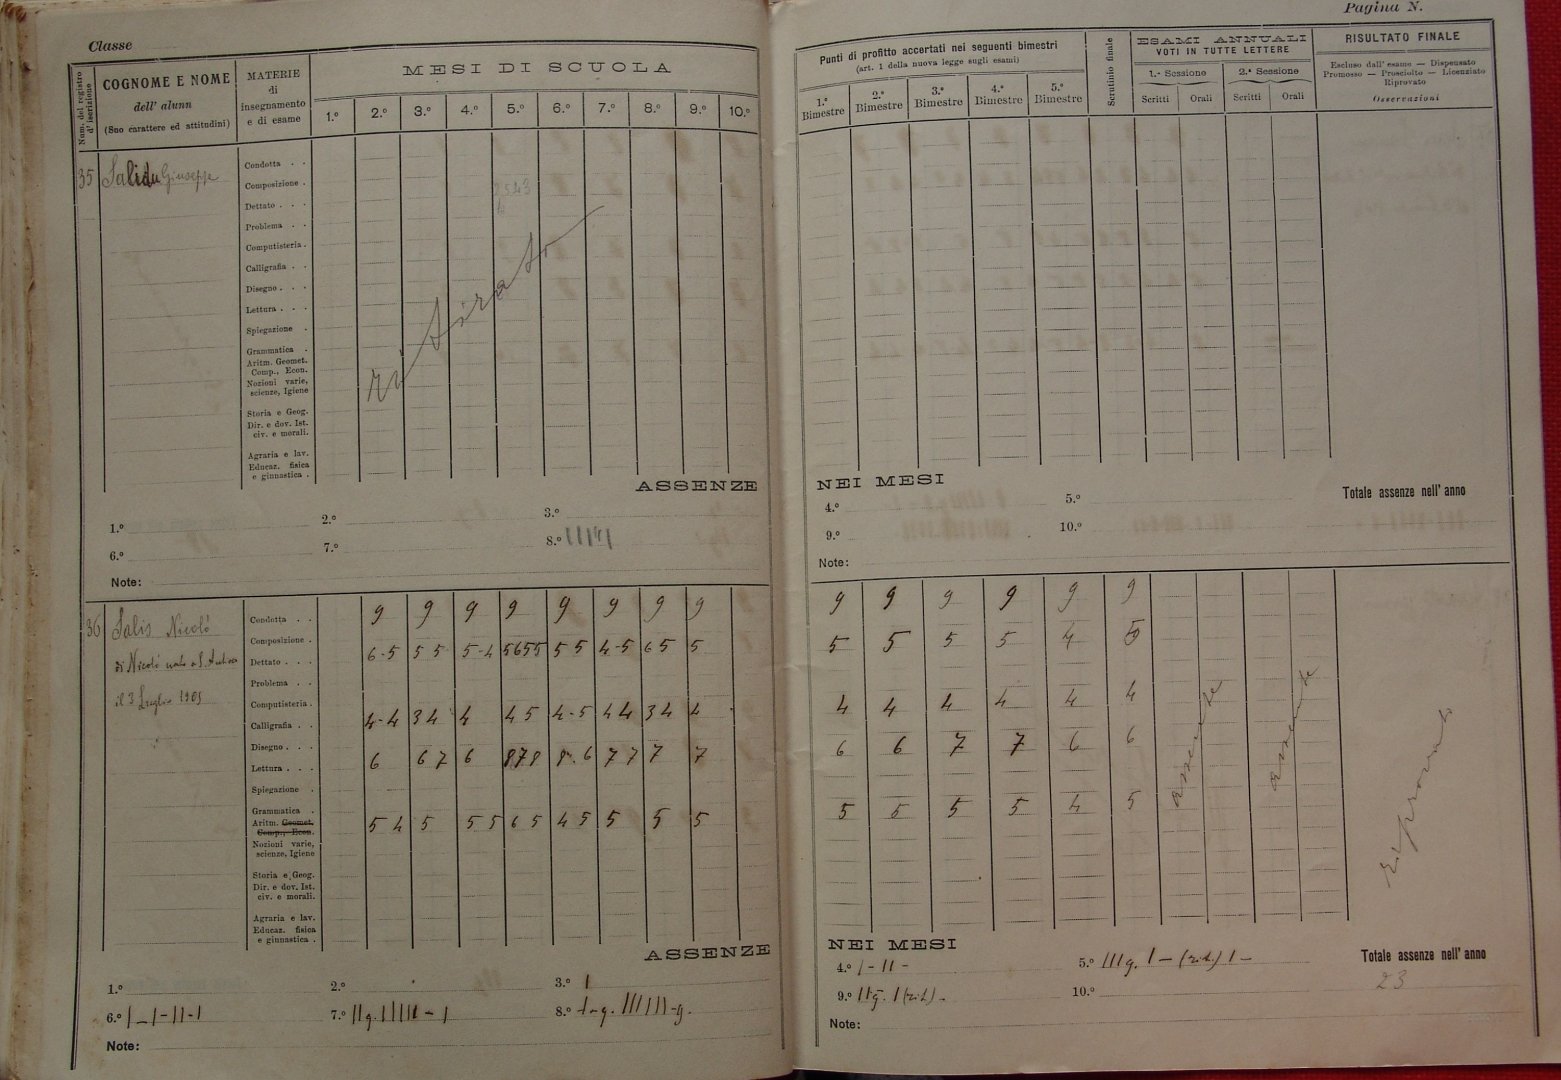 Classe
Pagina N.
Num. del registro d' iscrizione
COGNOME E NOME
dell' alunn
(Suo carattere ed attitudini)
MATERIE
di
insegnamento
e di esame
MESI DI SCUOLA
1.º 2.º 3.º 4.º 5.º 6.º 7.º 8.º 9.º 10.º
Punti di profitto accertati nei seguenti bimestri
(art. 1 della nuova legge sugli esami)
1.º Bimestre 2.º Bimestre 3.º Bimestre 4.º Bimestre 5.º Bimestre
Scrutinio finale
ESAMI ANNUALI
VOTI IN TUTTE LETTERE
1.ª Sessione 2.ª Sessione
Scritti Orali Scritti Orali
RISULTATO FINALE
Escluso dall' esame — Dispensato
Promosso — Prosciolto — Licenziato
Riprovato
Osservazioni
35 Salidu Giuseppe
Condotta . .
Composizione .
Dettato . . .
Problema . .
Computisteria .
Calligrafia . .
Disegno . . .
Lettura . . .
Spiegazione .
Grammatica .
Aritm. Geomet.
Comp., Econ.
Nozioni varie,
scienze, Igiene
Storia e Geog.
Dir. e dov. Ist.
civ. e morali.
Agraria e lav.
Educaz. fisica
e ginnastica .
ritirato
ASSENZE NEI MESI
1.º 2.º 3.º 4.º 5.º
Totale assenze nell' anno
6.º 7.º 8.º 9.º 10.º
Note: Note:
36 Salis Nicolò
di Nicolò nato a S.
il 3 Luglio 1903
Condotta . . 9 9 9 9 9 9 9 9 9 9 9 9 9 9
Composizione . 6-5 5 5 5-4 5655 5 5 4-5 6 5 5 5 5 5 5 4 5
Dettato . . .
Problema . .
Computisteria .
Calligrafia . . 4-4 3 4 4 4 5 4-5 4 4 3 4 4 4 4 4 4 4 4
Disegno . . .
Lettura . . . 6 6 7 6 878 8. 6 7 7 7 7 6 6 7 7 6 6
Spiegazione .
Grammatica .
Aritm. Geomet. 5 4 5 5 5 6 5 4 5 5 5 5 5 5 5 5 4 5
Comp., Econ.
Nozioni varie,
scienze, Igiene
Storia e Geog.
Dir. e dov. Ist.
civ. e morali.
Agraria e lav.
Educaz. fisica
e ginnastica .
assente
assente
Riprovato
ASSENZE NEI MESI
1.º 2.º 3.º I 4.º I - II - 5.º III g. I - (rit.) I -
Totale assenze nell' anno
23
6.º I - I - II - I 7.º II g. IIIII - I 8.º I - g. IIIIII - g. 9.º II g. I (rit.) - 10.º
Note: Note: